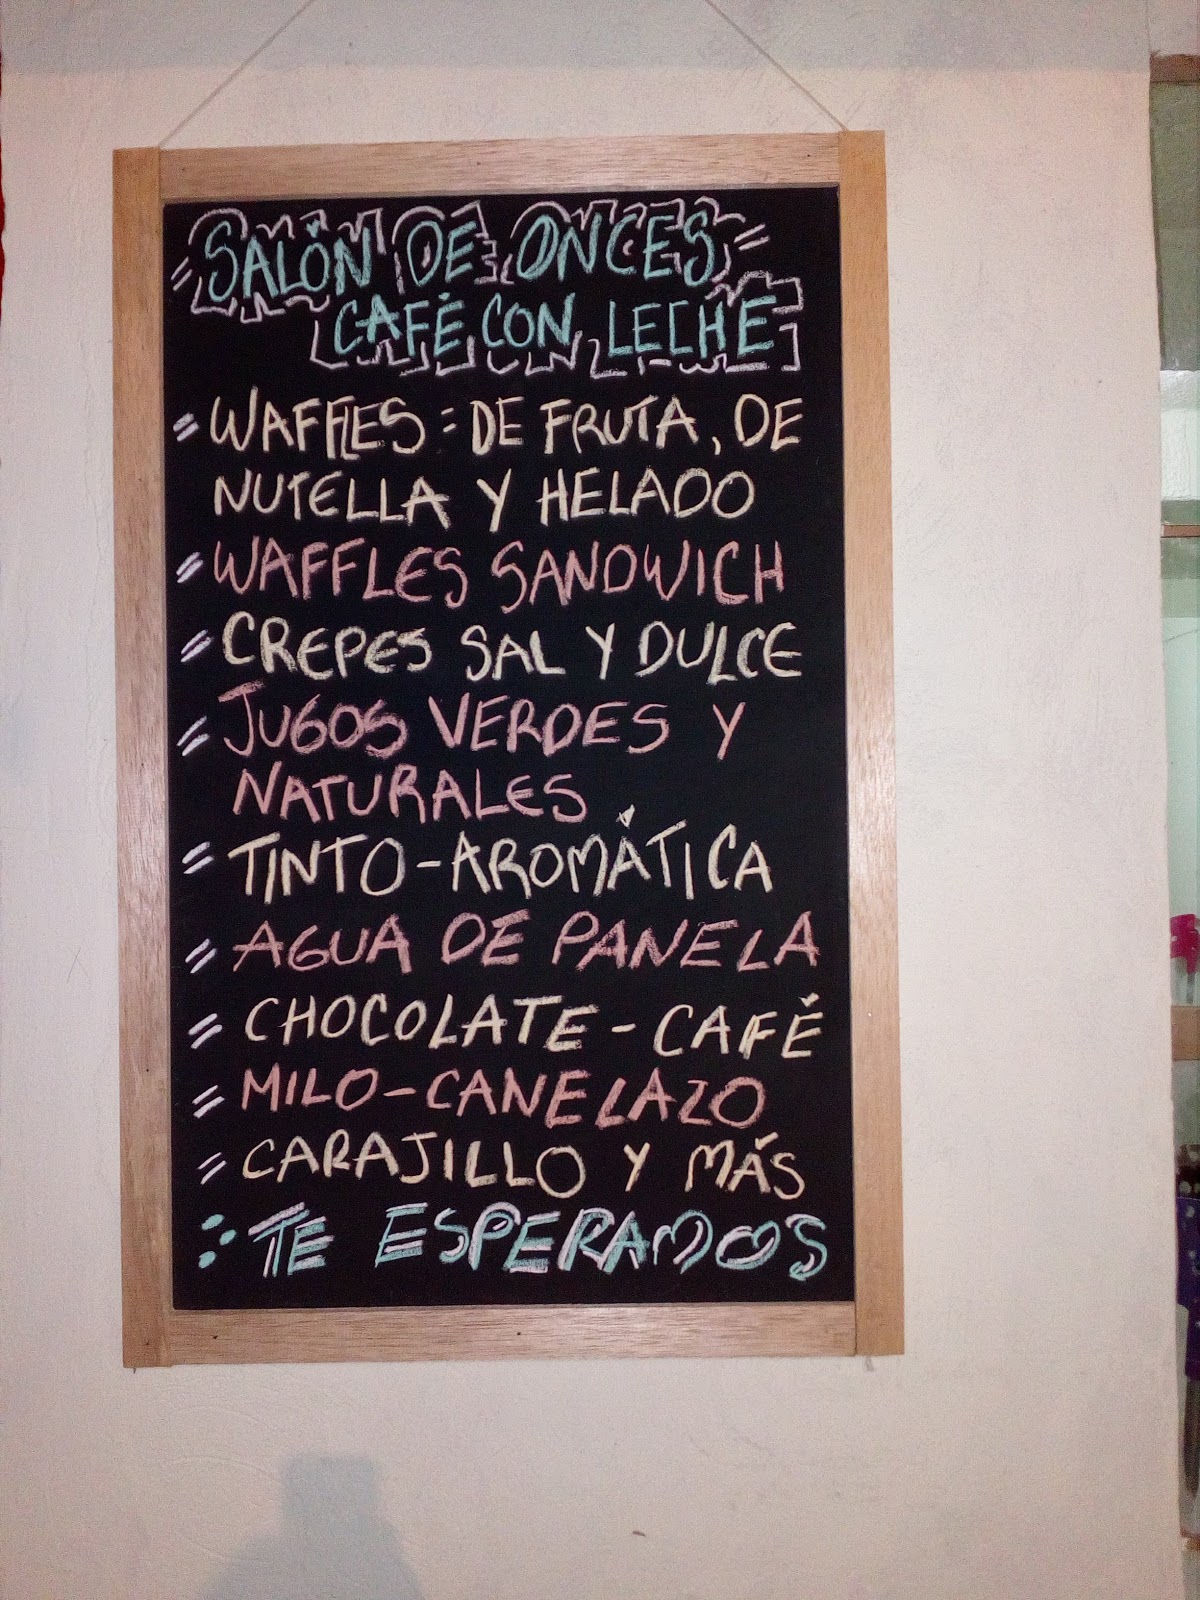 SALÓN DE ONCES
CAFÉ CON LECHE
= WAFFLES = DE FRUTA, DE
NUTELLA Y HELADO
= WAFFLES SANDWICH
= CREPES SAL Y DULCE
= JUGOS VERDES Y
NATURALES
= TINTO - AROMÁTICA
= AGUA DE PANELA
= CHOCOLATE - CAFÉ
= MILO - CANELAZO
= CARAJILLO Y MÁS
: TE ESPERAMOS